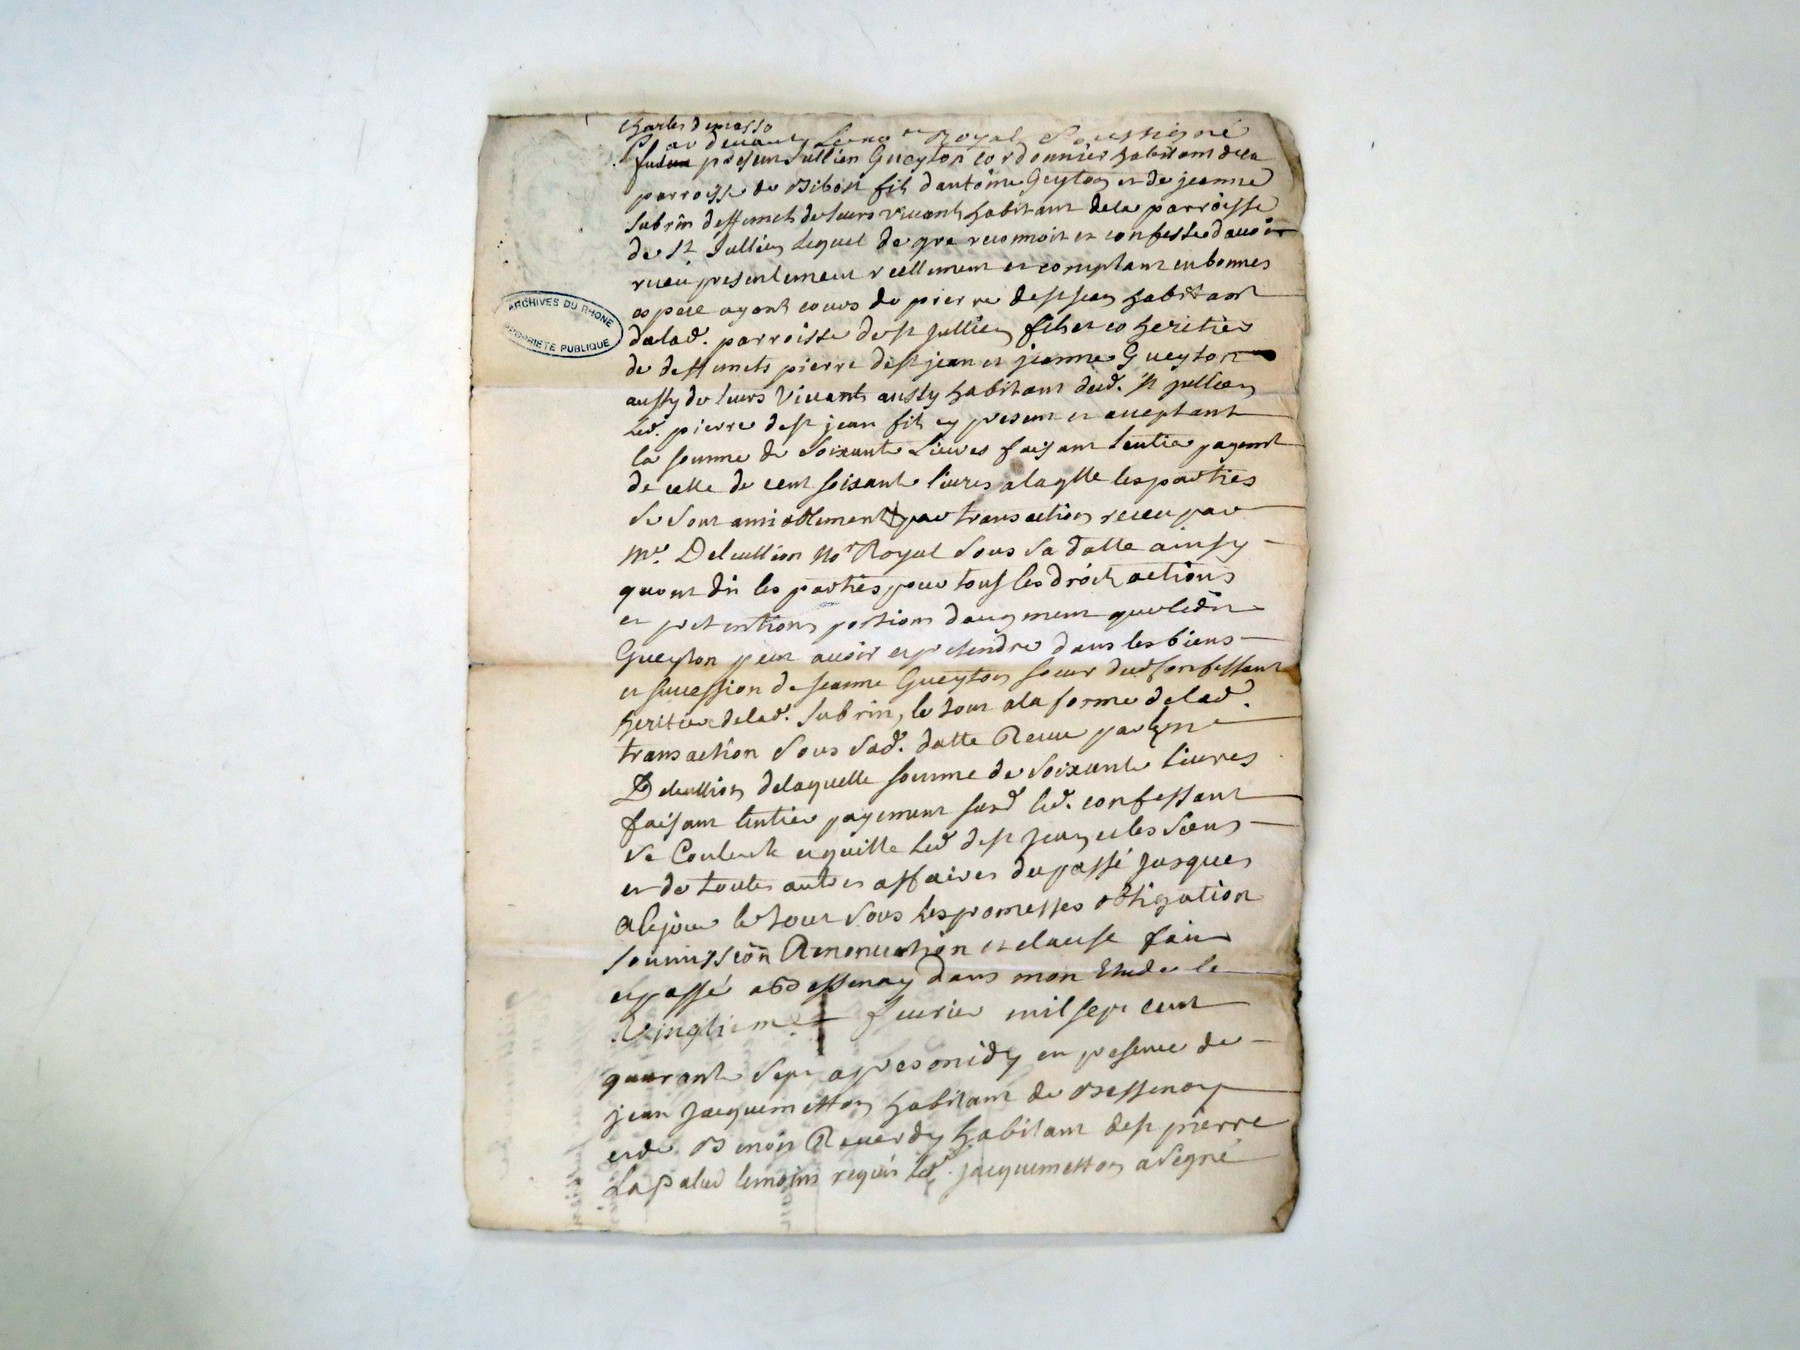 Par devant Le no.re Royal Soussigné
fut present Jullien Gueyton cordonnier habitant de la
parroisse de Bibost fils d'antoine Geyton et de jeanne
Subrin deffunts de leurs vivants habitant de la parroisse
de St Jullien Lequel de gre reconnoit et confesse d'avoir
receu presentement reellement et comptant en bonnes
espece ayant cours de pierre de st jean habitant
de lad. parroisse de st jullien fils et coheritier
de deffunts pierre de st jean et jeanne Gueyton
aussy de leurs vivants aussy habitant dud. St jullien
Led. pierre de st jean fils cy present et acceptant
la somme de Soixante Livres faisant l'entier payemt
de celle de cent soixante livres a laqlle les parties
se sont amiablement par transaction receu par
Me. Royal sous sa datte ainsy
quont dit les parties pour tous les droits actions
et pretentions portions d'augment que ledit
Gueyton peut avoir et pretendre dans les biens
et succession de jeanne Gueyton soeur dud confessant
heritiere de lad. Subrin, le tout a la forme de lad.
transaction sous sad. datte Receue par
de laquelle somme de soixante livres
faisant l'entier payement susd led. confessant
se Contente et quitte Led de st jean et les siens
et de toutes autres affaires du passé jusques
a ce jour le tout sous les promesses obligation
soumission Renonciation et clause fait
et passé a Bessenay dans mon Etude le
vingtieme fevrier mil sept cent
quarante sept apres midy en presence de
jean jacquemetton habitant de Bessenay
et de Benoit Reverdy habitant de st pierre
Lapalud temoins requis Led. jacquemetton a signé
ARCHIVES DU RHONE
PROPRIETE PUBLIQUE